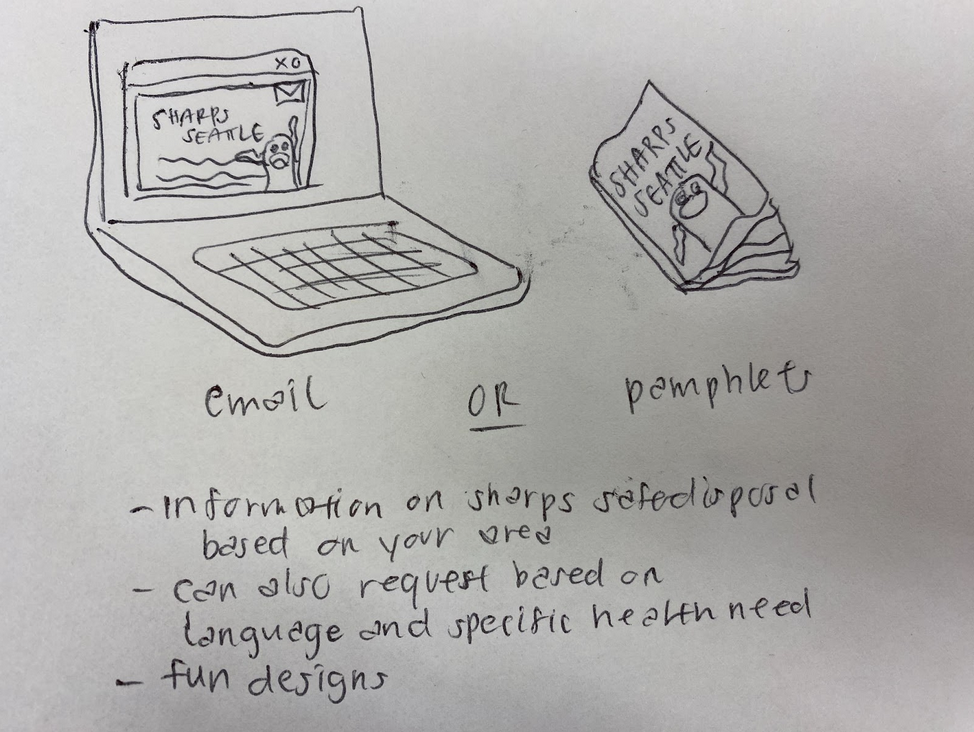 XO
SHARPS
SEATTLE
SHARPS
SEATTLE
email
OR
pamphlet
- information on sharps safe disposal
based on your area
- can also request based on
language and specific health need
- fun designs